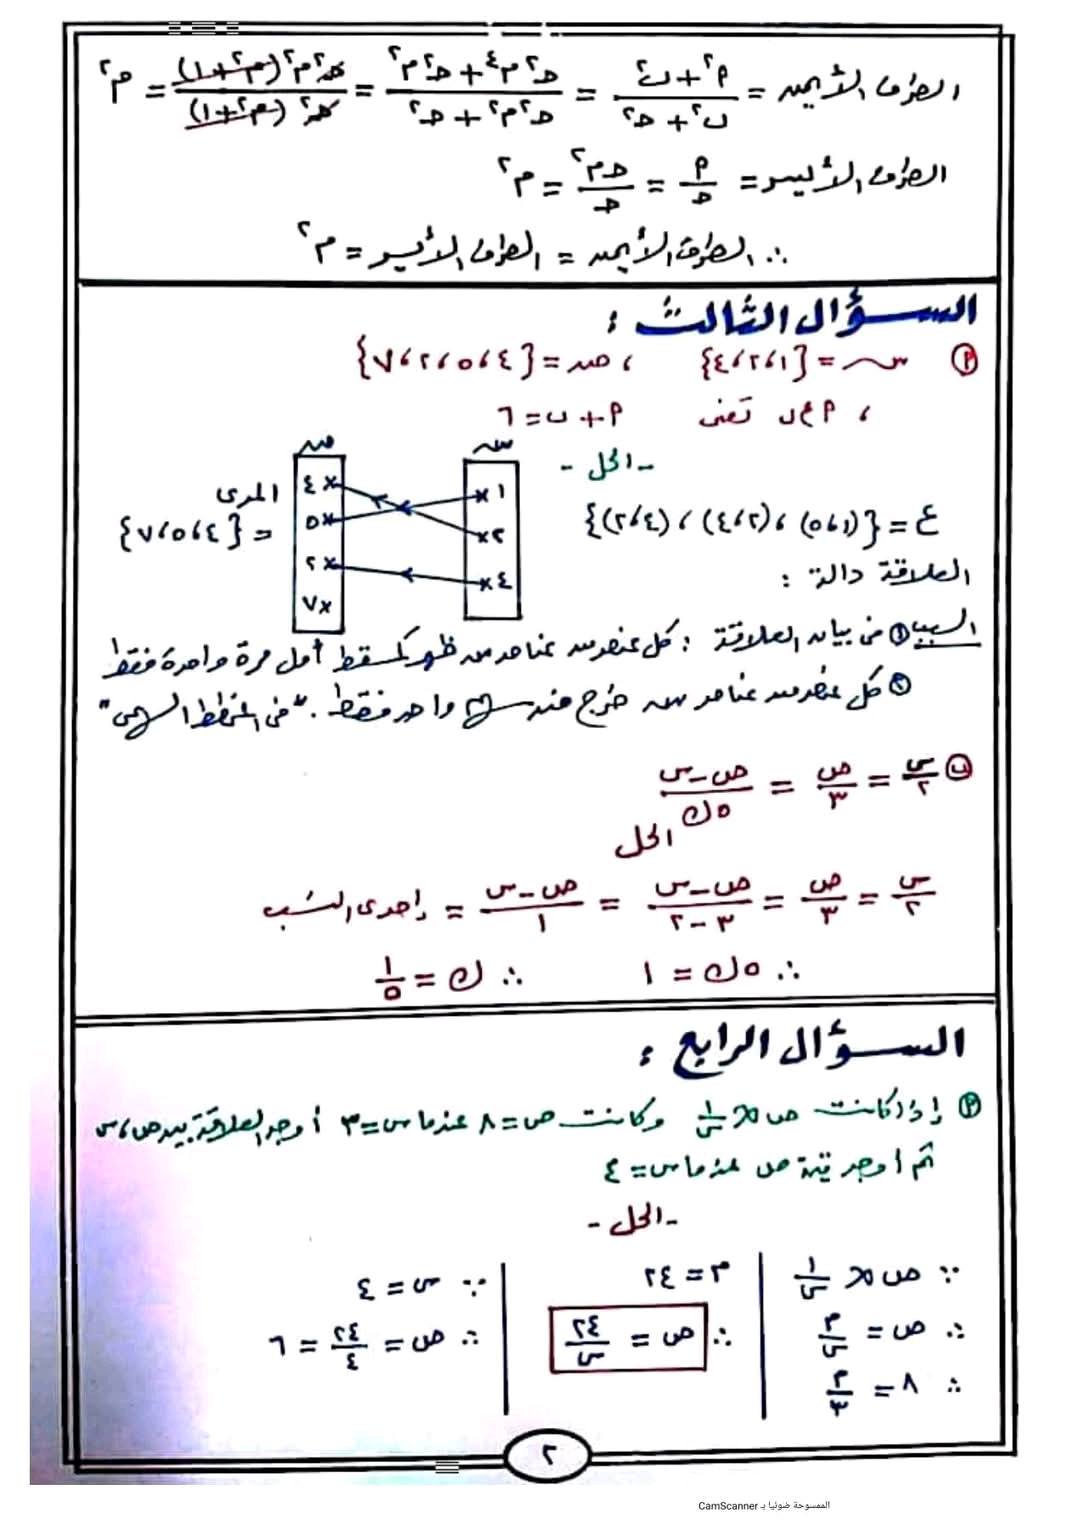 الطرف الأيمن = (أ٢ + ب٢) / (ب٢ + جـ٢) = (جـ٢ م٤ + جـ٢ م٢) / (جـ٢ م٢ + جـ٢) = جـ٢ م٢ (م٢ + ١) / جـ٢ (م٢ + ١) = م٢
الطرف الأيسر = أ / جـ = جـ م٢ / جـ = م٢
∴ الطرف الأيمن = الطرف الأيسر = م٢
السؤال الثالث :
أ س = {١، ٢، ٤} ، ص = {٤، ٥، ٢، ٧}
، أ ع ب تعنى أ + ب = ٦
- الحل -
ع = {(١، ٥)، (٢، ٤)، (٤، ٢)}
س ص
١ ٢ ٤
٤ ٥ ٢ ٧
المدى = {٤، ٥، ٧}
العلاقة دالة :
السبب ① من بيان العلاقة : كل عنصر من عناصر س ظهر كمسقط أول مرة واحدة فقط
② كل عنصر من عناصر س خرج منه سهم واحد فقط . "من المخطط السهمى"
ب س/٢ = ص/٣ = (ص - س)/٥ك
الحل
س/٢ = ص/٣ = (ص - س)/(٣ - ٢) = (ص - س)/١ = إحدى النسب
∴ ٥ك = ١ ∴ ك = ١/٥
السؤال الرابع :
أ إذا كانت ص ∝ ١/س وكانت ص = ٨ عندما س = ٣ أوجد العلاقة بين ص، س
ثم أوجد قيمة ص عندما س = ٤
- الحل -
∵ ص ∝ ١/س
∴ ص = م/س
∴ ٨ = م/٣
م = ٢٤
∴ ص = ٢٤/س
∵ س = ٤
∴ ص = ٢٤/٤ = ٦
٢
الممسوحة ضوئيا بـ CamScanner